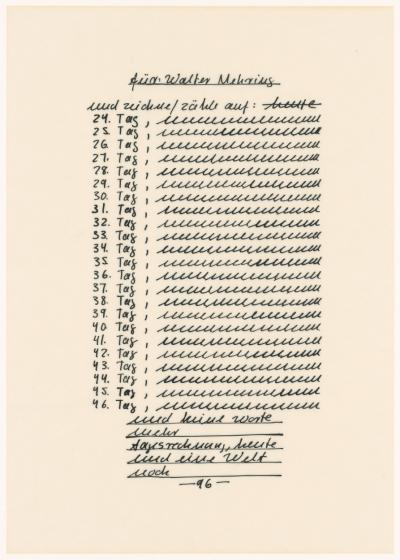 für: Walter Mehring
und zeichne/zähle auf: heute
24. Tag,
25. Tag,
26. Tag,
27. Tag,
28. Tag,
29. Tag,
30. Tag,
31. Tag,
32. Tag,
33. Tag,
34. Tag,
35. Tag,
36. Tag,
37. Tag,
38. Tag,
39. Tag,
40. Tag,
41. Tag,
42. Tag,
43. Tag,
44. Tag,
45. Tag,
46. Tag,
und keine worte
mehr
tagesrechnung, heute
und eine Welt
noch
—96—